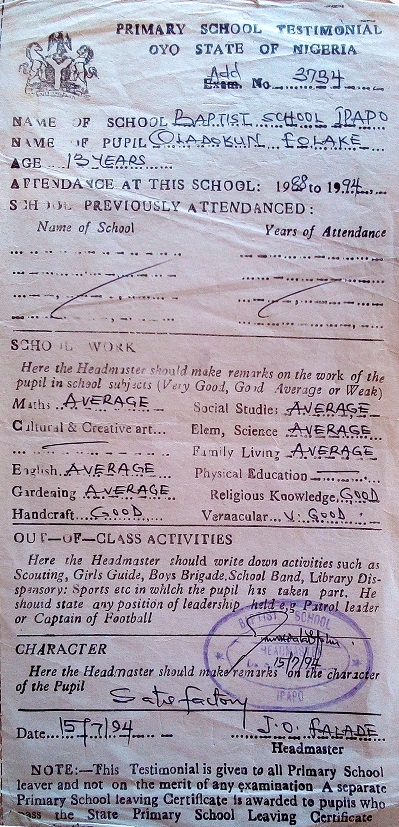 PRIMARY SCHOOL TESTIMONIAL
OYO STATE OF NIGERIA
Add
Exam. No. 3794
NAME OF SCHOOL BAPTIST SCHOOL IPAPO
NAME OF PUPIL OLADOKUN FOLAKE
AGE 13 YEARS
ATTENDANCE AT THIS SCHOOL: 1988 to 1994
SCHOOL PREVIOUSLY ATTENDED:
Name of School Years of Attendance
SCHOOL WORK
Here the Headmaster should make remarks on the work of the
pupil in school subjects (Very Good, Good Average or Weak)
Maths AVERAGE Social Studies AVERAGE
Cultural & Creative art... Elem, Science AVERAGE
Family Living AVERAGE
English AVERAGE Physical Education
Gardening AVERAGE Religious Knowledge GOOD
Handcraft GOOD Vernacular V. GOOD
OUT—OF—CLASS ACTIVITIES
Here the Headmaster should write down activities such as
Scouting, Girls Guide, Boys Brigade. School Band, Library Dis-
pensory: Sports etc in which the pupil has taken part. He
should state any position of leadership held e,g Patrol leader
or Captain of Football
BAPTIST SCHOOL
HEADMASTER
15/7/94
IPAPO
CHARACTER
Here the Headmaster should make remarks on the character
of the Pupil
Satisfactory
Date 15/7/94 J. O. FALADE
Headmaster
NOTE:—This Testimonial is given to all Primary School
leaver and not on the merit of any examination A separate
Primary School leaving Certificate is awarded to pupils who
pass the State Primary School Leaving Certificate